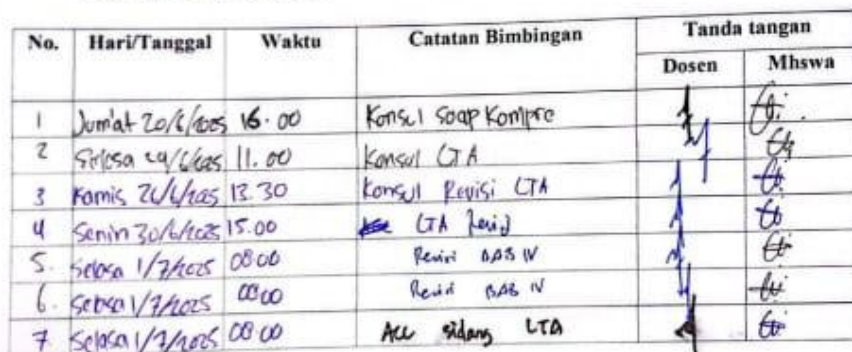 No. Hari/Tanggal Waktu Catatan Bimbingan Tanda tangan
Dosen Mhswa
1 Jum'at 20/6/2025 16.00 Konsul Soap Kompre
2 Selasa 24/6/2025 11.00 Konsul LTA
3 Kamis 26/6/2025 13.30 Konsul Revisi LTA
4 Senin 30/6/2025 15.00 LTA Revisi
5. Selasa 1/7/2025 08.00 Revisi BAB IV
6. Selasa 1/7/2025 08.00 Revisi BAB IV
7 Selasa 1/7/2025 08.00 Acc sidang LTA